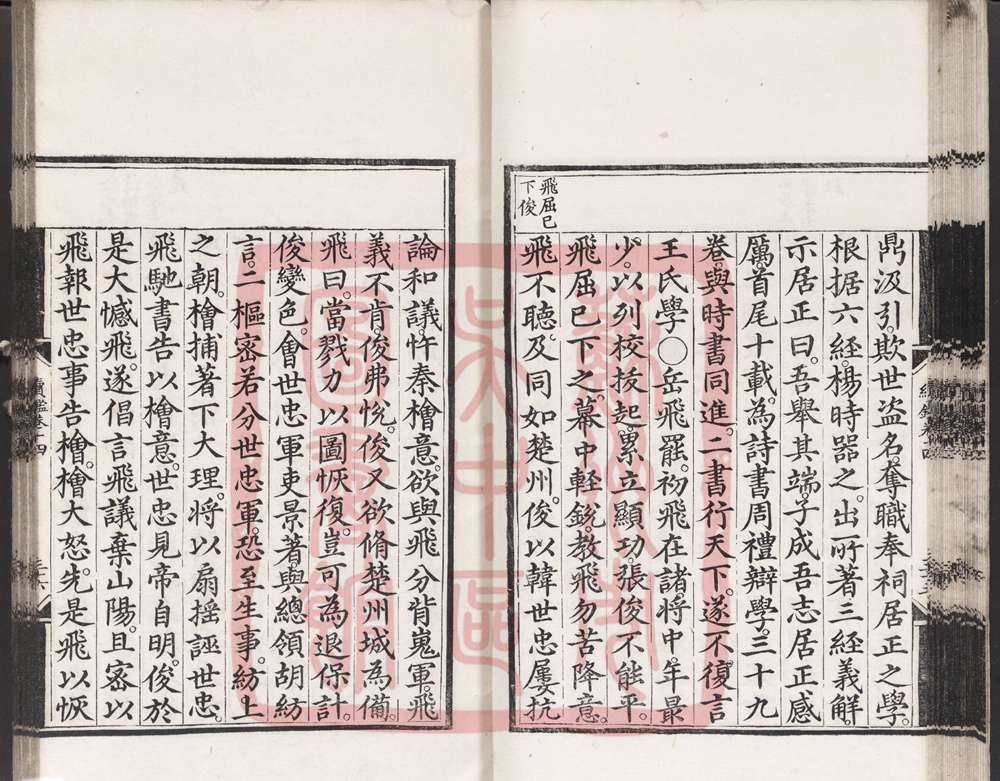 鼎汲引。欺世盗名奪職奉祠居正之學。
根据六経楊時器之。出所著三経義觧。
示居正曰。吾舉其端。子成吾志居正感
厲首尾十載。為詩書周禮辯學。三十九
卷。與時書同進。二書行天下。遂不復言
王氏學○岳飛罷。初飛在諸。将中年最
少。以列校拔起。累立顯功張俊不能平。
飛屈巳下之。幕中軽鋭。教飛勿苦降意。
飛不聴。及同如楚州。俊以韓世忠屢抗
飛屈巳
下俊
論和議忤秦檜意。欲與飛分背嵬軍。飛
義不肯。俊弗悅。俊又欲脩楚州城為備。
飛曰。當戮力以圖恢復。豈可為退保計。
俊變色。會世忠軍吏景著與總領胡紡
言。二樞密若分世忠軍。恐至生事。紡上
之朝。檜捕著下大理。将以扇揺誣世忠。
飛馳書告以檜意。世忠見帝自明。俊於
是大憾飛。遂倡言飛議棄山陽。且密以
飛報世忠事告檜。檜大怒。先是飛以恢